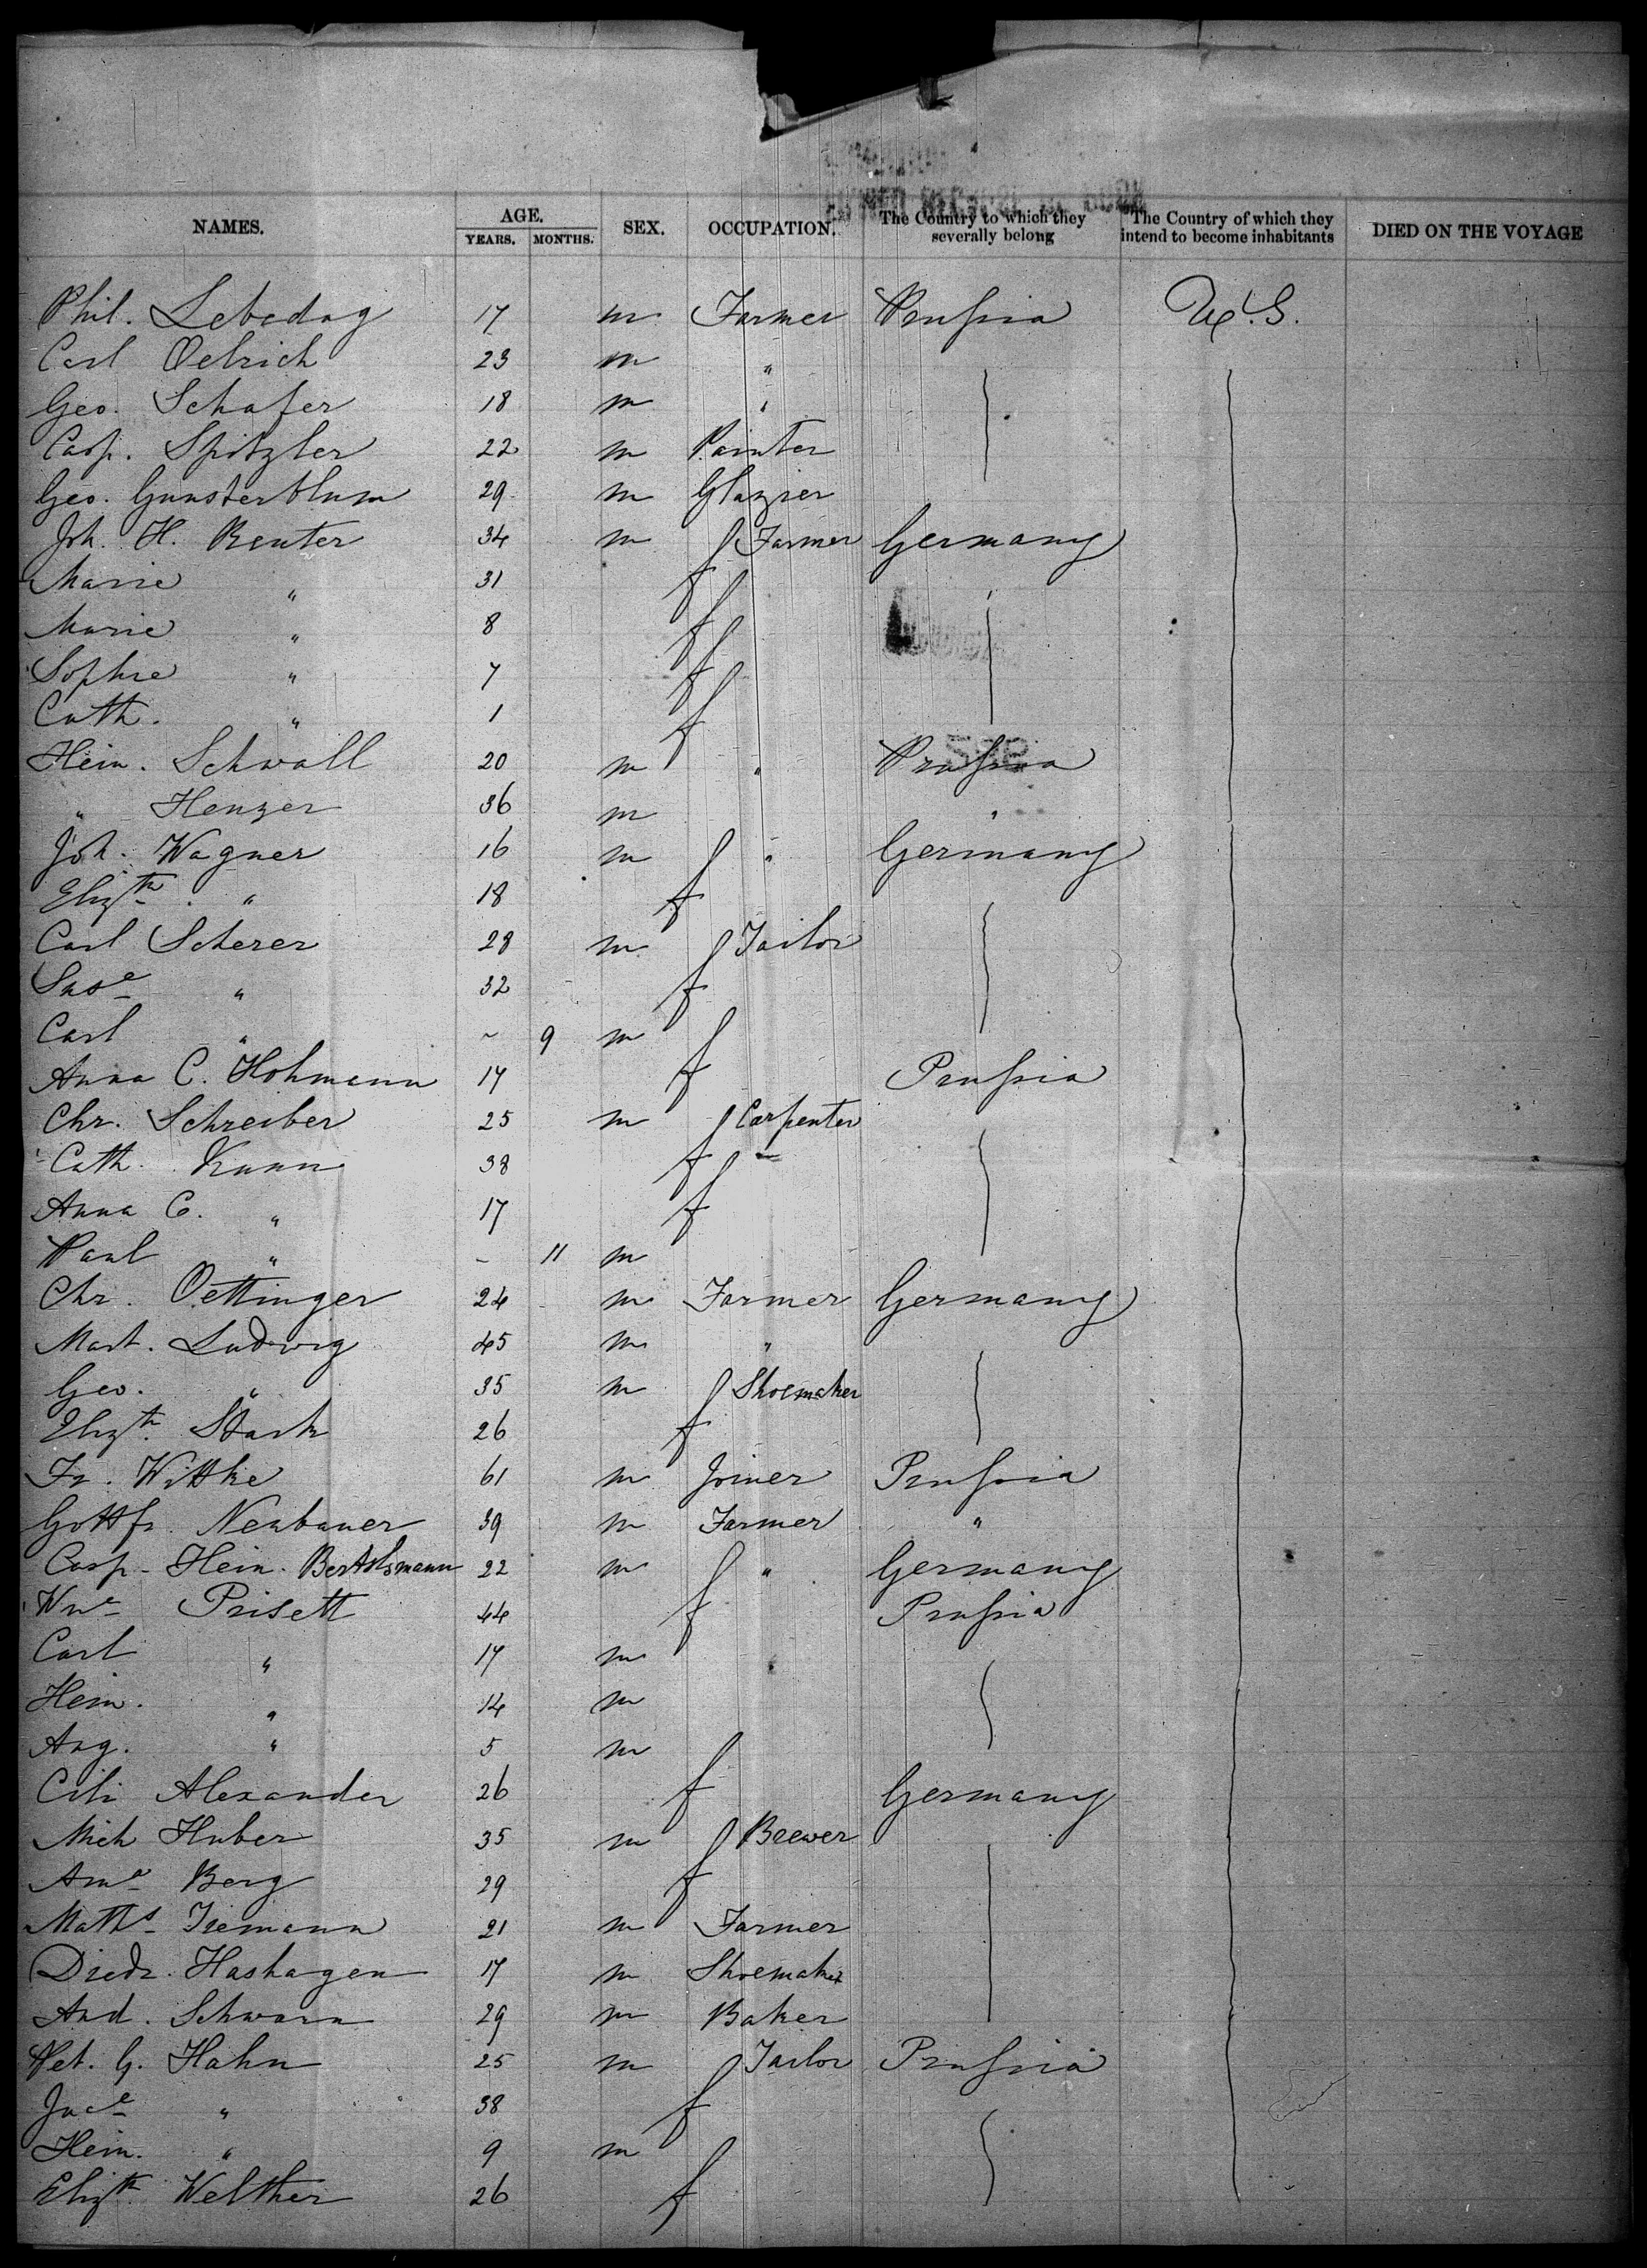 NAMES. AGE. SEX. OCCUPATION. The Country to which they severally belong The Country of which they intend to become inhabitants DIED ON THE VOYAGE
YEARS. MONTHS.
Phil. Lebedag 17 m Farmer Prussia U.S.
Carl Oelrich 23 m "
Geo. Schafer 18 m "
Casp. Spitzler 22 m Painter
Geo. Gunsterblum 29 m Glazier
Joh. H. Reuter 34 m Farmer Germany
Marie " 31 f
Marie " 8 f
Sophie " 7 f
Cath. " 1 f
Hein. Schwall 20 m " Prussia
" Henzer 36 m "
Joh. Wagner 16 m " Germany
Elizth " 18 f
Carl Scherer 28 m Tailor
Suse " 32 f
Carl " ~ 9 m
Anna C. Hohmann 17 f Prussia
Chr. Schreiber 25 m Carpenter
Cath. Kunn 38 f
Anna C. " 17 f
Paul " - 11 m
Chr. Oettinger 24 m Farmer Germany
Mart. Ludwig 45 m "
Geo. " 35 m Shoemaker
Elizth. Stark 26 f
Fr. Wittke 61 m Joiner Prussia
Gottfr. Neubauer 39 m Farmer "
Casp. Hein. Bertelsmann 22 m " Germany
Wne Prisett 44 f Prussia
Carl " 17 m
Hein. " 14 m
Aug. " 5 m
Alexander 26 f Germany
Mich Huber 35 m Brewer
Berg 29 f
Maths Tiemann 21 m Farmer
Diedr. Hashagen 17 m Shoemaker
And. Schwarn 29 m Baker
Pet. G. Hahn 25 m Tailor Prussia
" 38 f
Hein. " 9 m
Elizth Welther 26 f